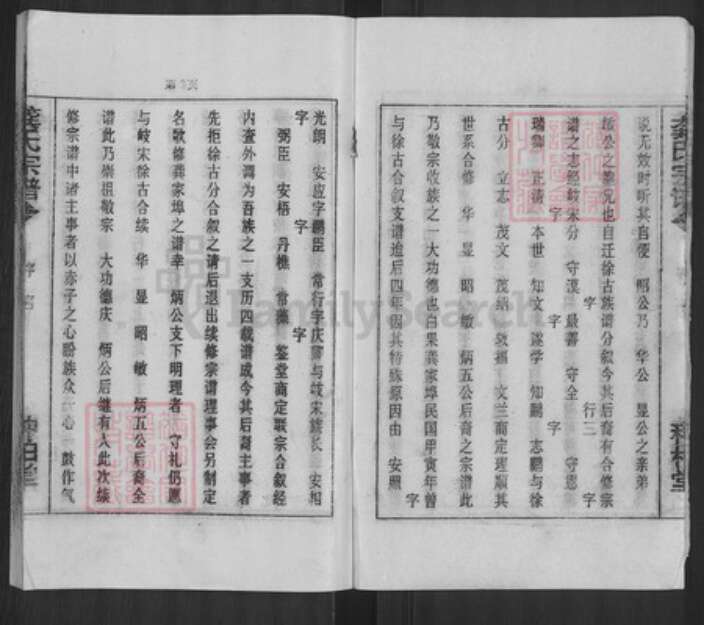 说无效时听其自便 昭公乃 华公 显公之亲弟
敏公之墓况也自迁徐古族谱分叙今其后裔有合修宗
字 行三 字
谱之志经岐宋分 守汉 最善 守全 守恩
字 字
瑞狮 正清 本世 知文 遂学 知鹏 志鹏与徐
古分 立志 茂文 茂绪 效福 文兰商定理顺其
世系合修 华 显 昭 敏 炳五公后裔之宗谱此
乃敬宗收族之一大功德也自果龚家埠民国甲寅年曾
字
与徐古合叙支谱迨后四年因其特殊原因由 安照
第 页
光朗 安应字鹏臣 常行字庆 与岐宋族长 安相
字 字 字
弼臣 安梧 丹樵 常藻 鉴堂商定联宗合叙经
内查外调为吾族之一支历四载谱成今其后裔主事者
先拒徐古分合叙之请后退出续修宗谱理事会另制定
名敬修龚家埠之谱幸 炳公支下明理者 守礼仍愿
与岐宋徐古合续 华 显 昭 敏 炳五公后裔全
谱此乃崇祖敬宗 大功德庆 炳公后继有人此次续
修宗谱中诸主事者以赤子之心盼族众 心 鼓作气
龚氏宗谱
FamilySearch